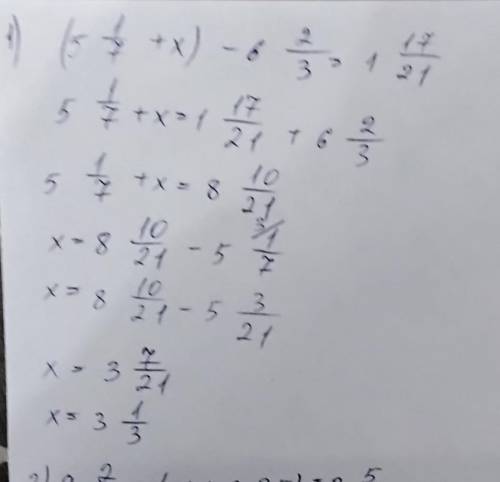 1) (5 1/7 + x) - 6 2/3 = 1 17/21
5 1/7 + x = 1 17/21 + 6 2/3
5 1/7 + x = 8 10/21
x = 8 10/21 - 5 1/7
x = 8 10/21 - 5 3/21
x = 3 7/21
x = 3 1/3